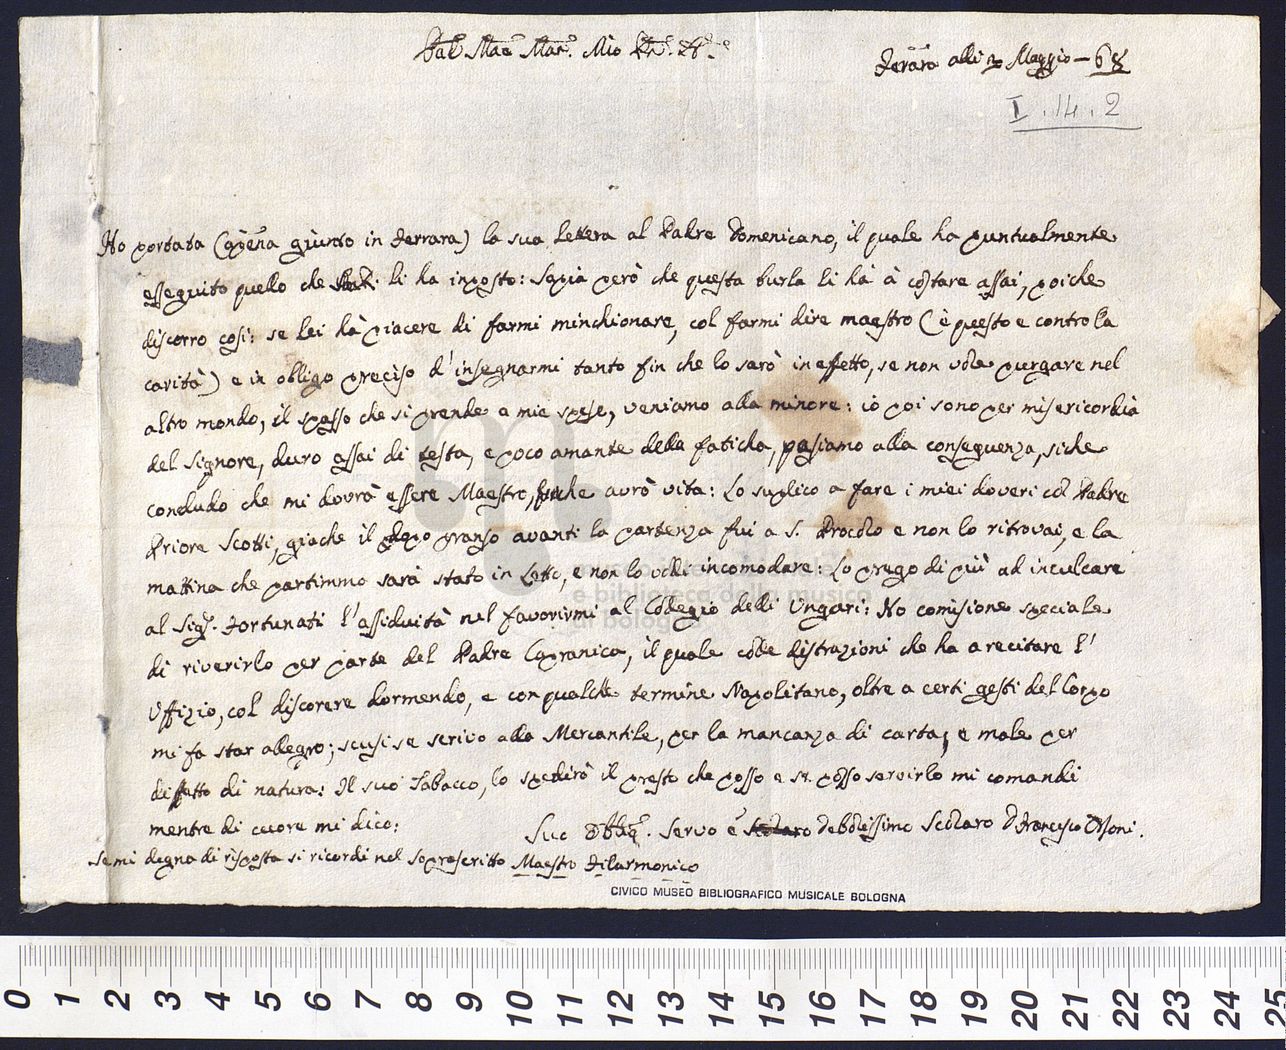 Mio
Ferara alli 20 Maggio – 68
I . 14 . 2
Ho portata (apena giunto in Ferrara) la sua lettera al Padre Domenicano, il quale ha puntualmente
esseguito quello che li ha inposto: Sapia però che questa burla li hà à costare assai, poiche
discorro cosi: se lei hà piacere di farmi minchionare, col farmi dire maestro (è questo e contro la
carità) e in obligo preciso d'insegnarmi tanto fin che lo sarò in effetto, se non vole purgare nel
altro mondo, il spasso che si prende a mie spese, veniamo alla minore: io poi sono per misericordia
del Signore, duro assai di testa, e poco amante della faticha, pasiamo alla conseguenza, siche
concludo che mi dovrà essere Maestro, finche avrò vita: Lo suplico a fare i miei doveri col Padre
Priore Scotti, giache il dopo pranso avanti la partenza fui a S. Procolo e non lo ritrovai, e la
mattina che partimmo sarà stato in Letto, e non lo volli incomodare: Lo prego di più ad inculcare
al Sigr. Fortunati l'assiduità nel favorirmi al Collegio delli Ungari: Ho comisione speciale
di riverirlo per parte del Padre Capranica, il quale colle distrazioni che ha a recitare l'
Uffizio, col discorere dormendo, e con qualche termine Napolitano, oltre a certi gesti del Corpo
mi fa star allegro; scusi se scrivo alla Mercantile, per la mancanza di carta, e male per
diffetto di natura: Il suo Tabacco, lo spedirò il presto che posso e se posso servirlo mi comandi
mentre di cuore mi dico:
Suo Obblig. Servo e debolissimo Scolaro D Francesco Orsoni.
se mi degna di risposta si ricordi nel soprascritto Maestro Filarmonico
CIVICO MUSEO BIBLIOGRAFICO MUSICALE BOLOGNA
museo internazionale
e biblioteca della musica
di bologna
0 1 2 3 4 5 6 7 8 9 10 11 12 13 14 15 16 17 18 19 20 21 22 23 24 25